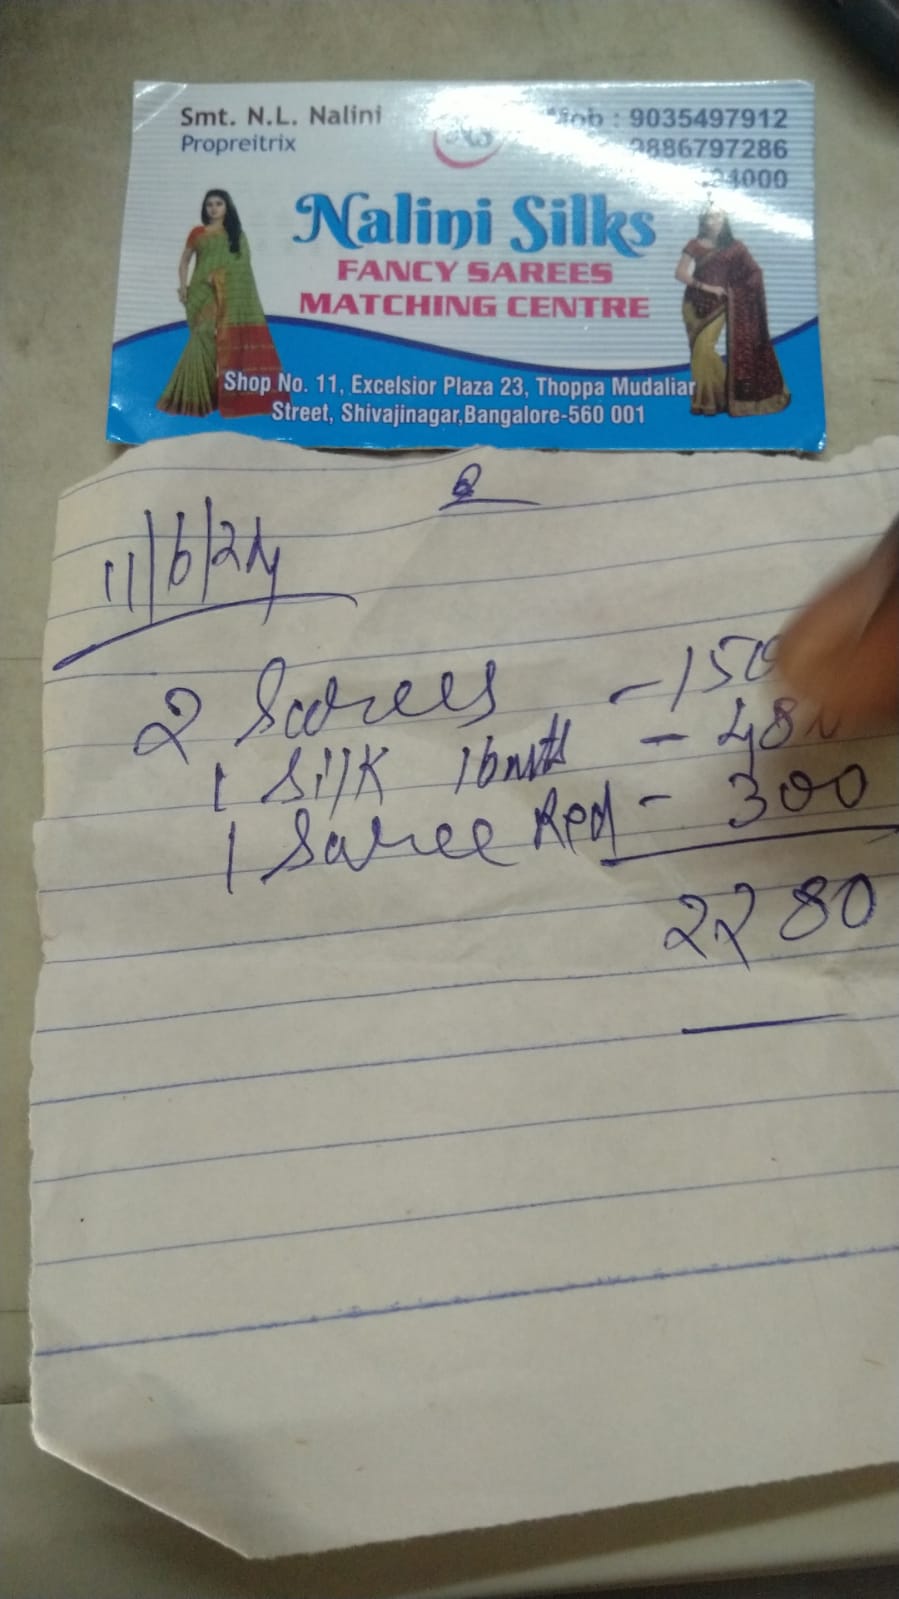 Smt. N.L. Nalini
Propreitrix
Mob : 9035497912
9886797286
NS
Nalini Silks
FANCY SAREES
MATCHING CENTRE
Shop No. 11, Excelsior Plaza 23, Thoppa Mudaliar
Street, Shivajinagar,Bangalore-560 001
11/6/24
2 Sarees -
1 Silk 16mts -
1 Saree Red - 300
2280